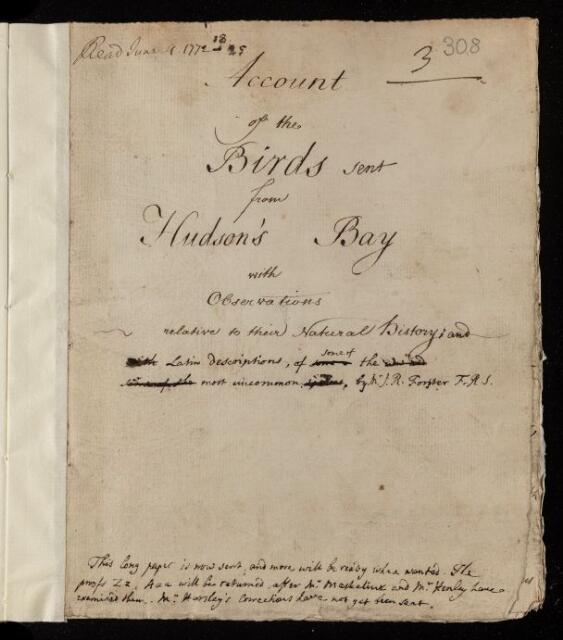 Read June 1772 18 25
3 308
Account
of the
Birds sent
from
Hudson's Bay
with
Observations
relative to their Natural History; and
Latin descriptions, of some of the
most uncommon, by Mr. J. R. Forster F. R. S.
This long paper is now sent, and more will be ready when wanted. The
proofs Zz, Aaa will be returned, after Mr Maskeline and Mr Henley have
examined them. Mr Horsley's Corrections have not yet been sent.